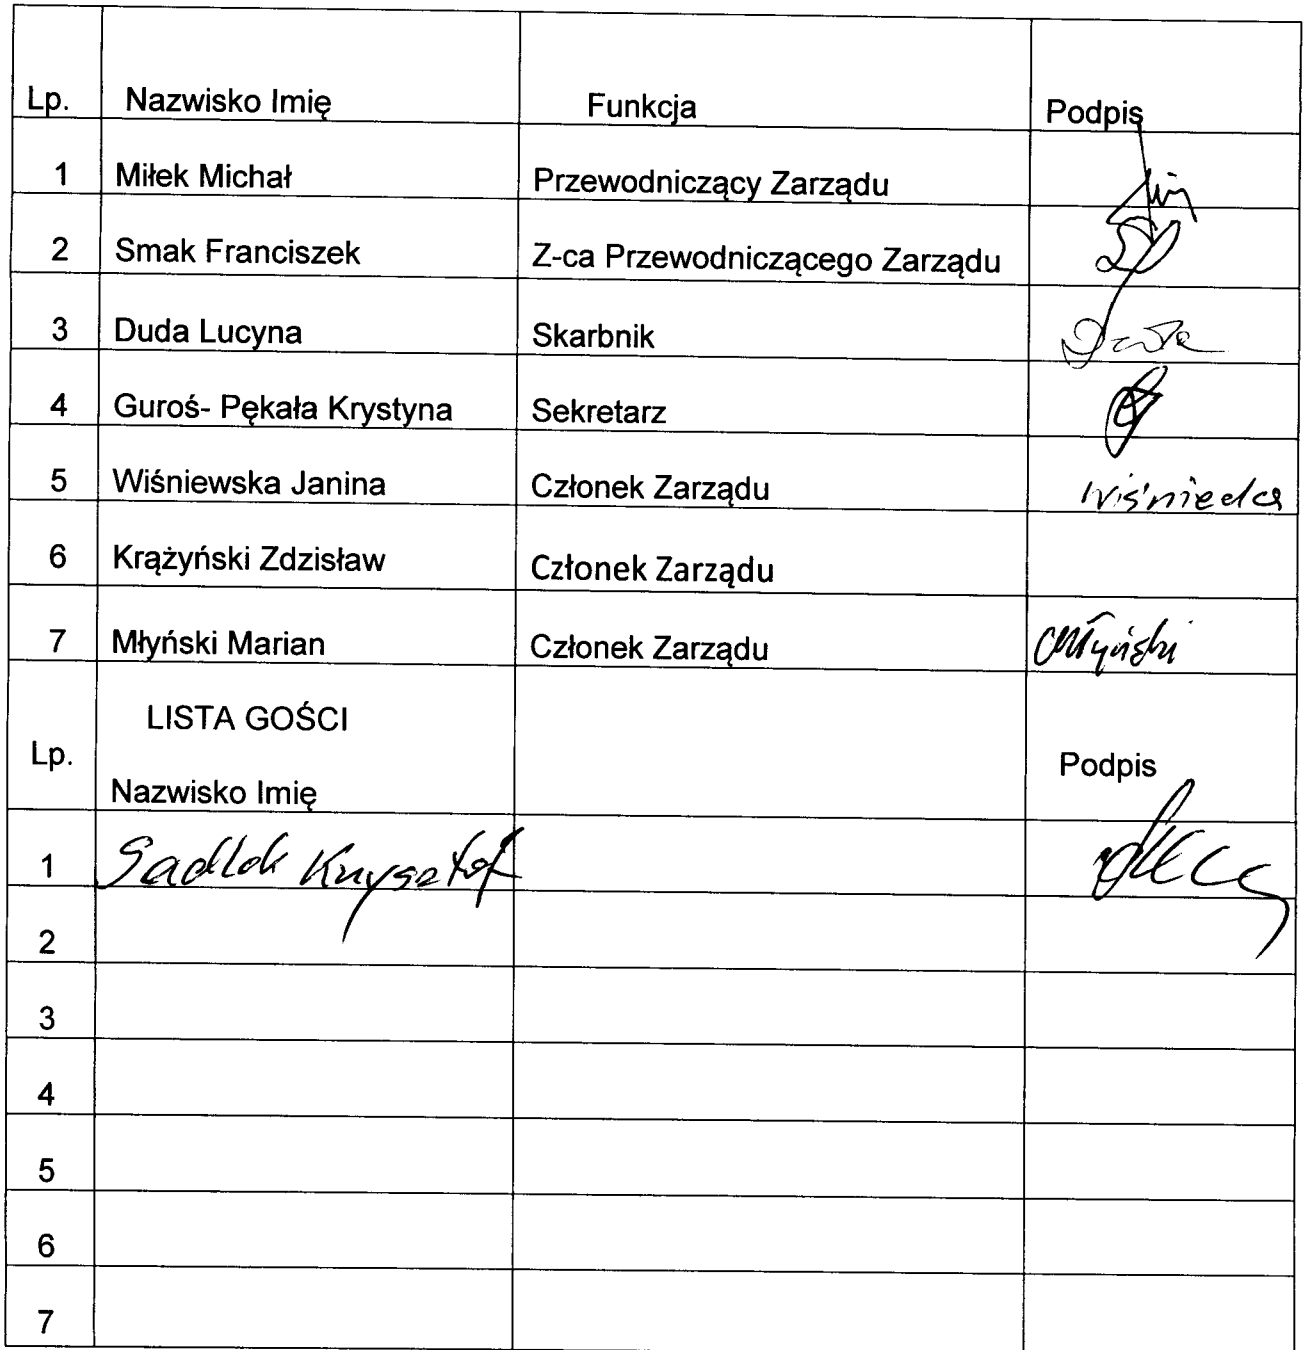 Lp. Nazwisko Imię Funkcja Podpis
1 Miłek Michał Przewodniczący Zarządu
2 Smak Franciszek Z-ca Przewodniczącego Zarządu
3 Duda Lucyna Skarbnik Duda
4 Guroś- Pękała Krystyna Sekretarz
5 Wiśniewska Janina Członek Zarządu
6 Krążyński Zdzisław Członek Zarządu
7 Młyński Marian Członek Zarządu Młyński
LISTA GOŚCI
Lp. Podpis
Nazwisko Imię
1 Sadlok Krzysztof
2
3
4
5
6
7